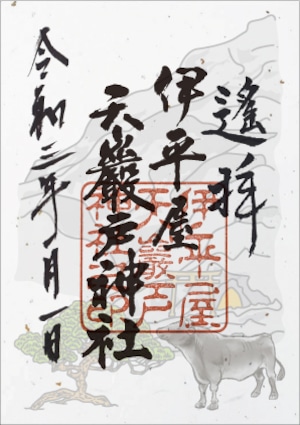 遙拝
伊平屋
天巖戸神社
令和三年一月一日
伊平屋
天巖戸
神社之印